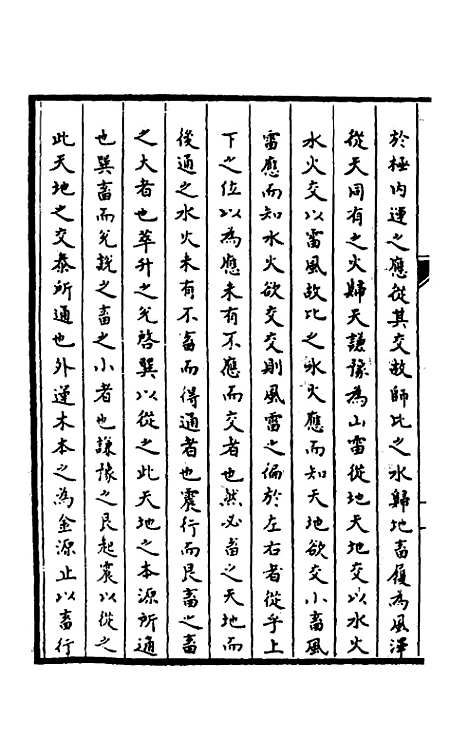 於極內運之應從其交故師比之水歸地畜履為風澤
從天同有之火歸天謙豫為山雷從地天地交以水火
水火交以雷風故比之水火應而知天地欲交小畜風
雷應而知水火欲交交則風雷之偏於左右者從乎上
下之位以為應未有不應而交者也然必畜之天地而
後通之水火未有不畜而得通者也震行而艮畜之畜
之大者也萃升之兌啓巽以從之此天地之本源所通
也巽畜而兌說之畜之小者也謙豫之艮起震以從之
此天地之交泰所通也外運木本之為金源止以畜行